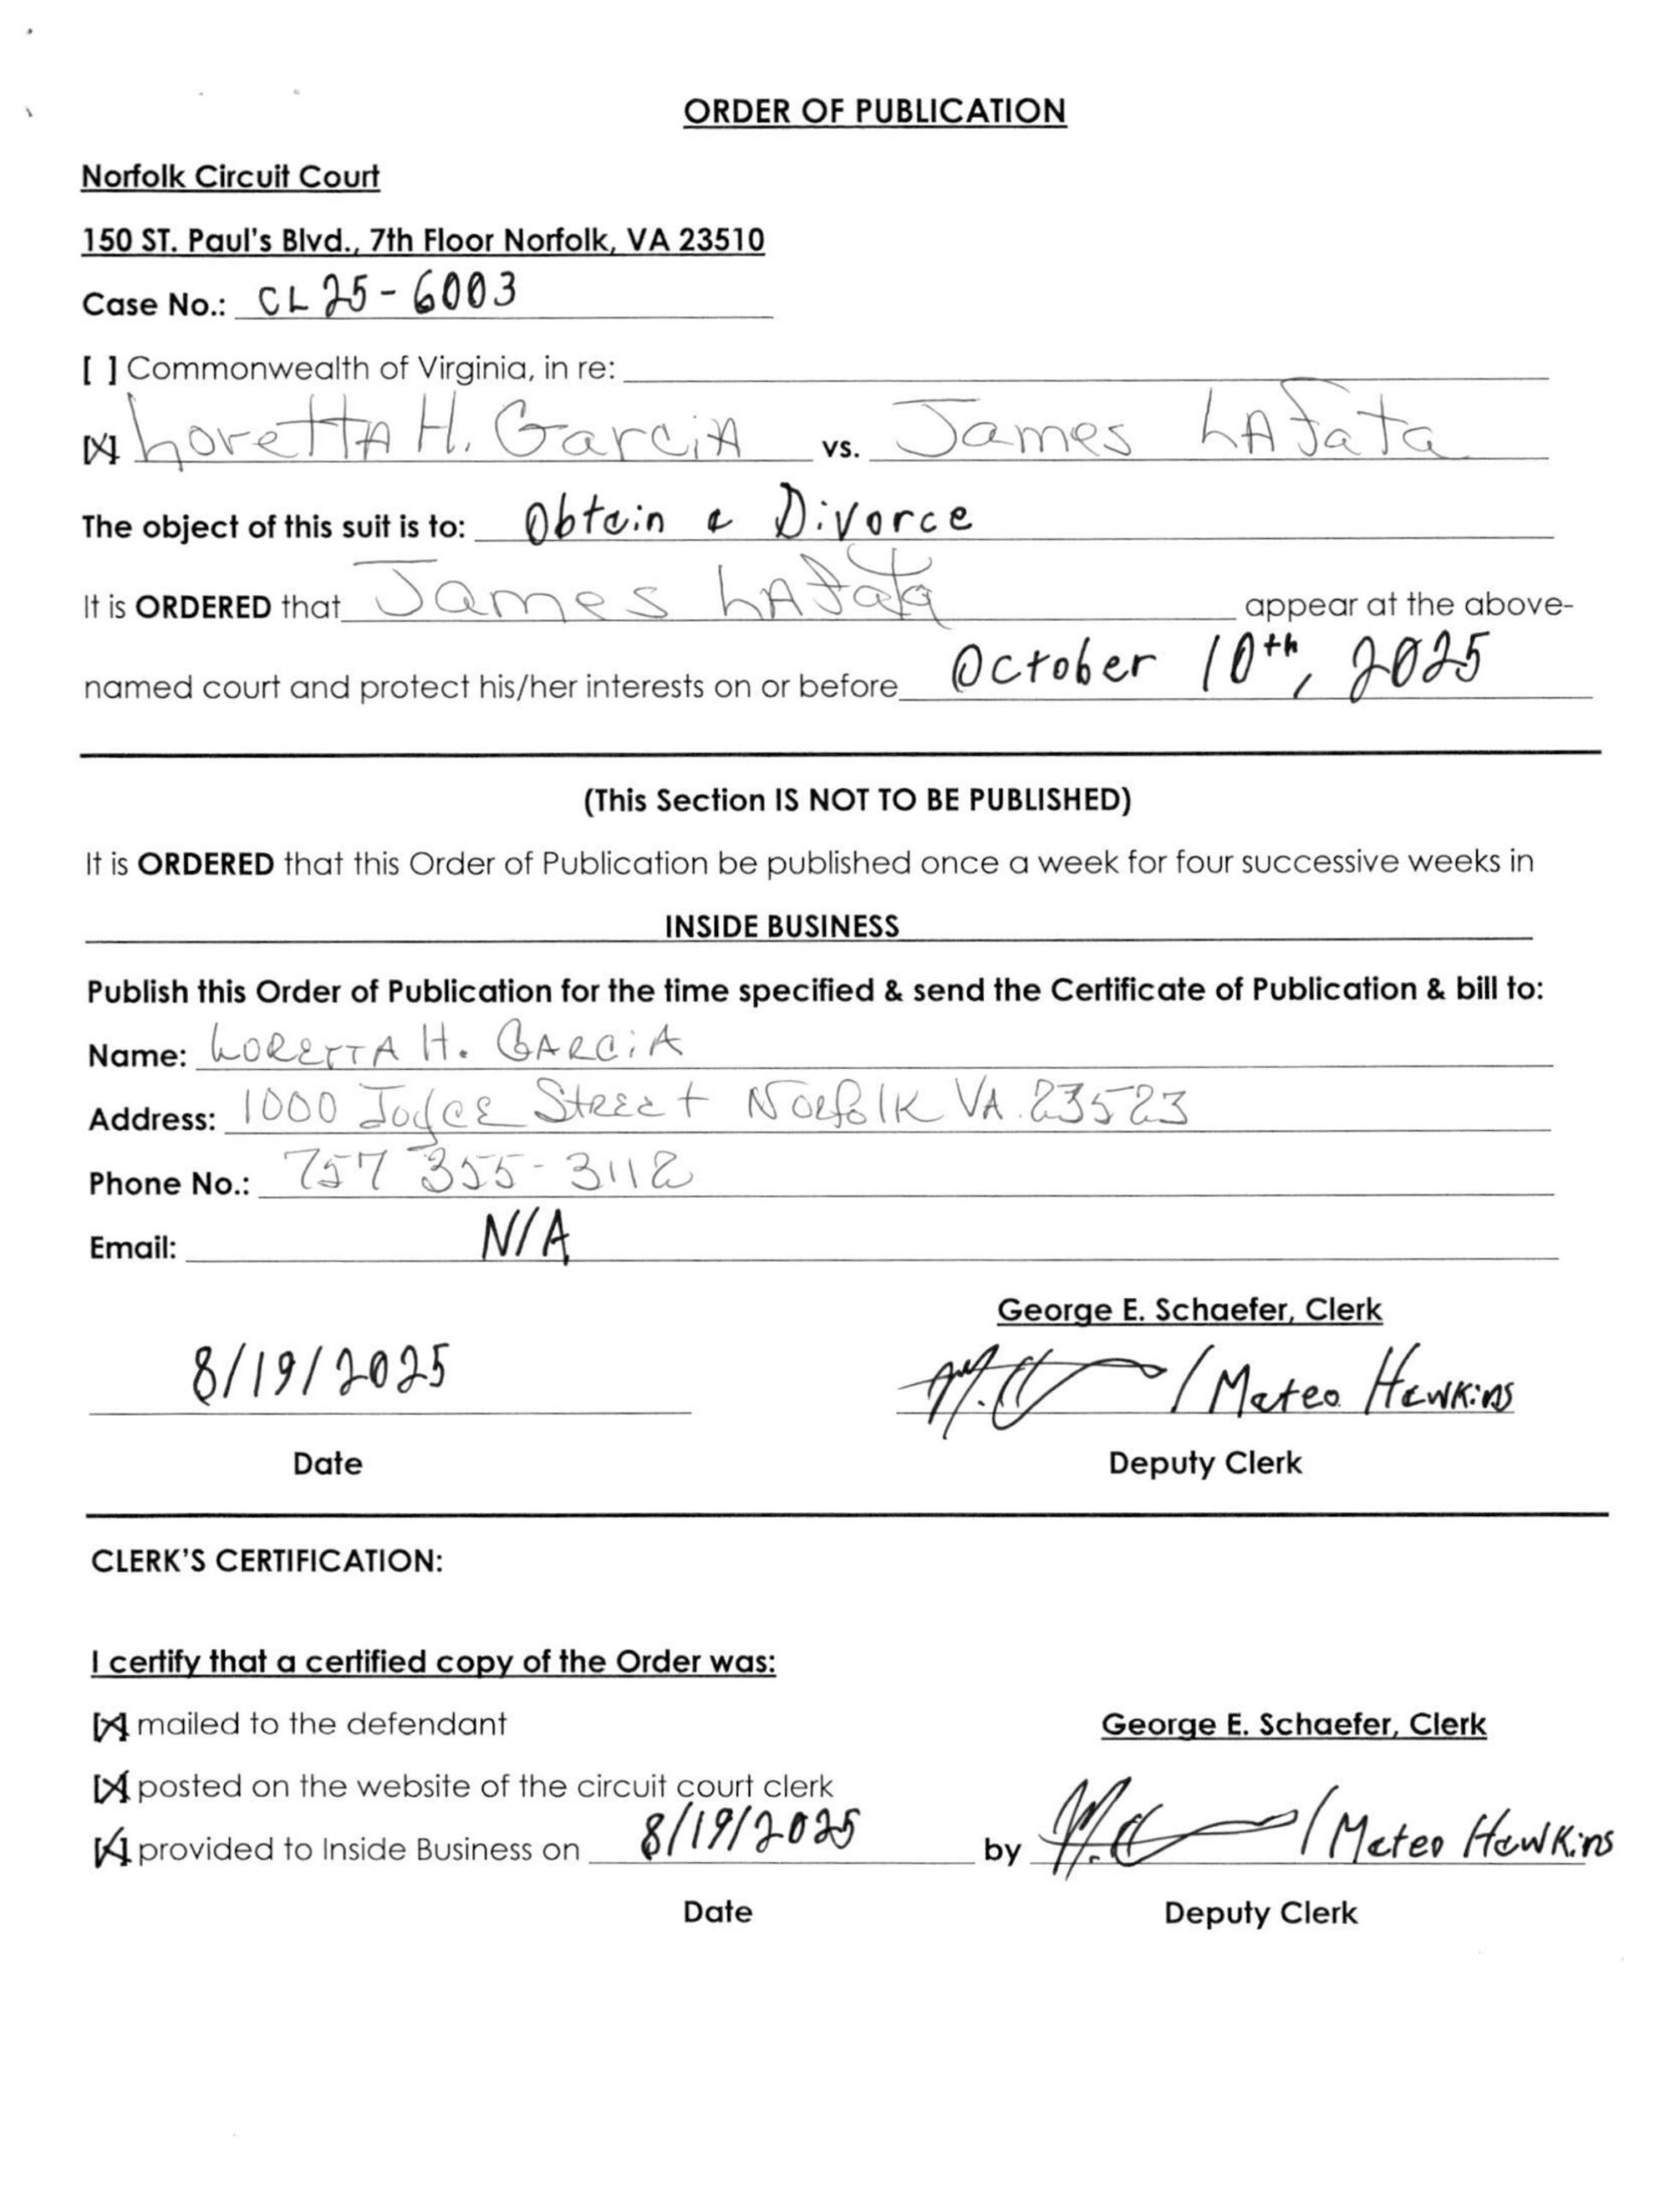 ORDER OF PUBLICATION
Norfolk Circuit Court
150 ST. Paul's Blvd., 7th Floor Norfolk, VA 23510
Case No.: CL25-6003
[ ] Commonwealth of Virginia, in re:
[X] Loretta H. Garcia vs. James
The object of this suit is to: Obtain a Divorce
It is ORDERED that James appear at the above-
named court and protect his/her interests on or before October 10th, 2025
(This Section IS NOT TO BE PUBLISHED)
It is ORDERED that this Order of Publication be published once a week for four successive weeks in
INSIDE BUSINESS
Publish this Order of Publication for the time specified & send the Certificate of Publication & bill to:
Name: LORETTA H. GARCIA
Address: 1000 Joyce Street Norfolk VA. 23523
Phone No.: 757 355-3112
Email: N/A
George E. Schaefer, Clerk
8/19/2025 / Mateo Hawkins
Date Deputy Clerk
CLERK'S CERTIFICATION:
I certify that a certified copy of the Order was:
[X] mailed to the defendant George E. Schaefer, Clerk
[X] posted on the website of the circuit court clerk
[X] provided to Inside Business on 8/19/2025 by / Mateo Hawkins
Date Deputy Clerk